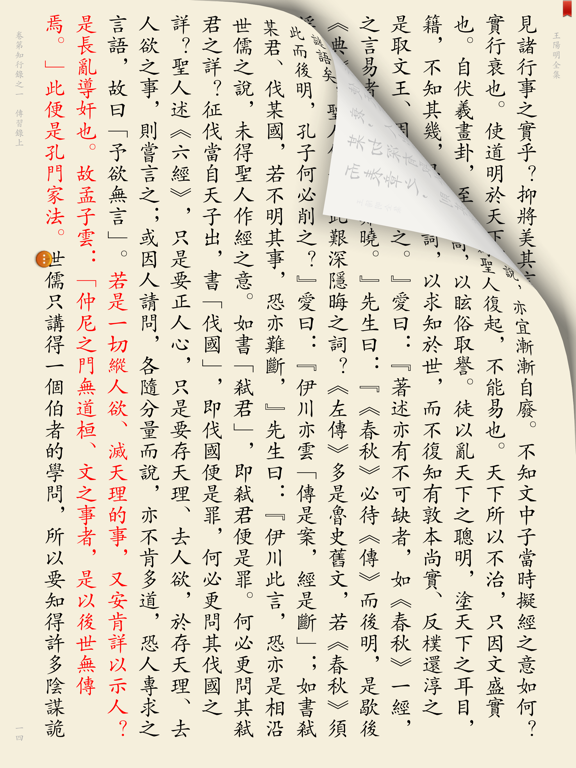 王陽明全集
見諸行事之實乎？抑將美其
不知文中子當時擬經之意如何？
實行衰也。使道明於天下
亦宜漸漸自廢。
聖人復起，不能易也。天下所以不治，只因文盛實
也。自伏羲畫卦，至
以眩俗取譽。徒以亂天下之聰明，塗天下之耳目，
籍，不知其幾，
詞，以求知於世，而不復知有敦本尚實、反樸還淳之
是取文王、周
之。』愛曰：『著述亦有不可缺者，如《春秋》一經，
之言易者
曉。』先生曰：『《春秋》必待《傳》而後明，是歇後
《典
聖人
此艱深隱晦之詞？《左傳》多是魯史舊文，若《春秋》須
謎語矣
此而後明，孔子何必削之？』愛曰：『伊川亦雲「傳是案，經是斷」；如書弒
某君、伐某國，若不明其事，恐亦難斷，』先生曰：『伊川此言，恐亦是相沿
世儒之說，未得聖人作經之意。如書「弒君」，即弒君便是罪。何必更問其弒
君之詳？征伐當自天子出，書「伐國」，即伐國便是罪，何必更問其伐國之
詳？聖人述《六經》，只是要正人心，只是要存天理、去人欲，於存天理、去
人欲之事，則嘗言之；或因人請問，各隨分量而說，亦不肯多道，恐人專求之
言語，故曰「予欲無言」。若是一切縱人欲、滅天理的事，又安肯詳以示人？
是長亂導奸也。故孟子雲：「仲尼之門無道桓、文之事者，是以後世無傳
焉。」此便是孔門家法。世儒只講得一個伯者的學問，所以要知得許多陰謀詭
卷第知行錄之一　傳習錄上
一四